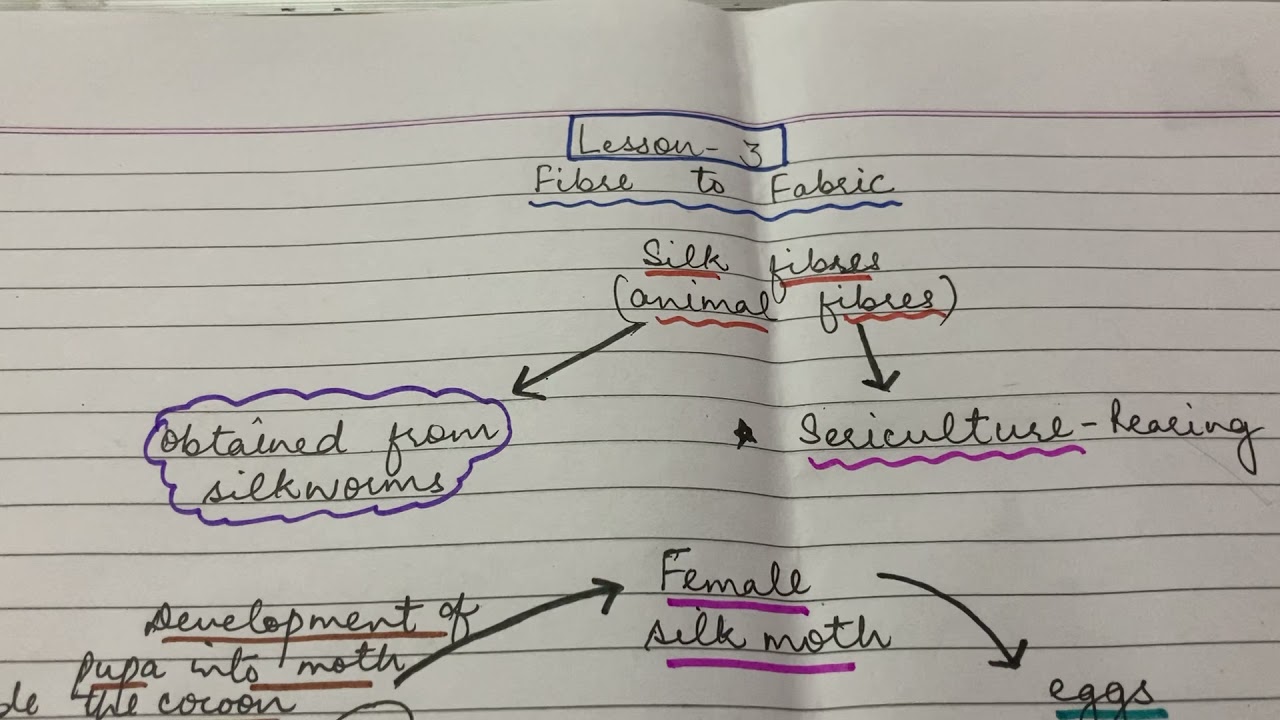 Lesson- 3
Fibre to Fabric
Silk fibres
(animal fibres)
Obtained from
silkworms
★ Sericulture-Rearing
Female
silk moth
Development of
pupa into moth
the cocoon
eggs